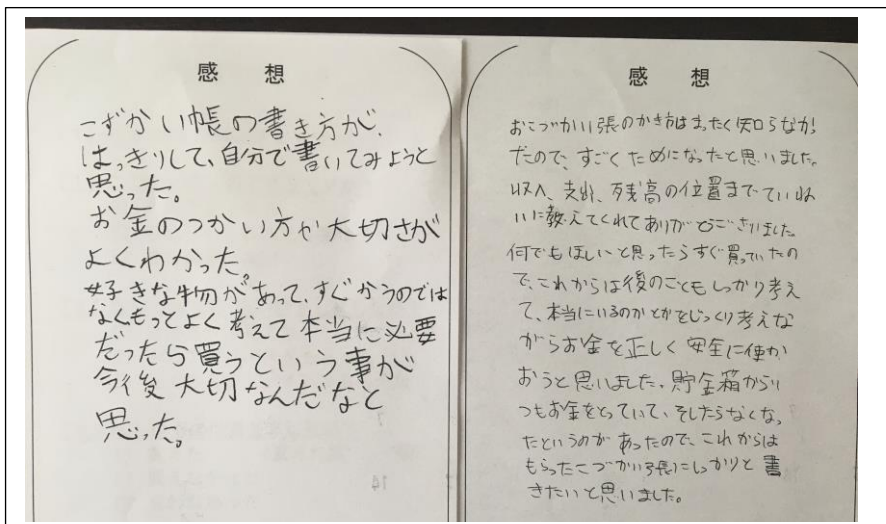 感想
こずかい帳の書き方が、
はっきりして、自分で書いてみようと
思った。
お金のつかい方や大切さが
よくわかった。
好きな物があって、すぐかうのでは
なくもっとよく考えて本当に必要
だったら買うという事が
今後大切なんだなと
思った。
感想
おこづかい張のかき方はまったく知らなかっ
たので、すごくためになったと思いました。
収入、支出、残高の位置までていね
いに教えてくれてありがとうございました
何でもほしいと思ったらすぐ買っていたの
で、これからは後のこともしっかり考え
て、本当にいるのかとかをじっくり考えな
がらお金を正しく安全に使か
おうと思いました。貯金箱からい
つもお金をとっていて、そしたらなくなっ
たというのがあったので、これからは
もらったこづかい張にしっかりと書
きたいと思いました。